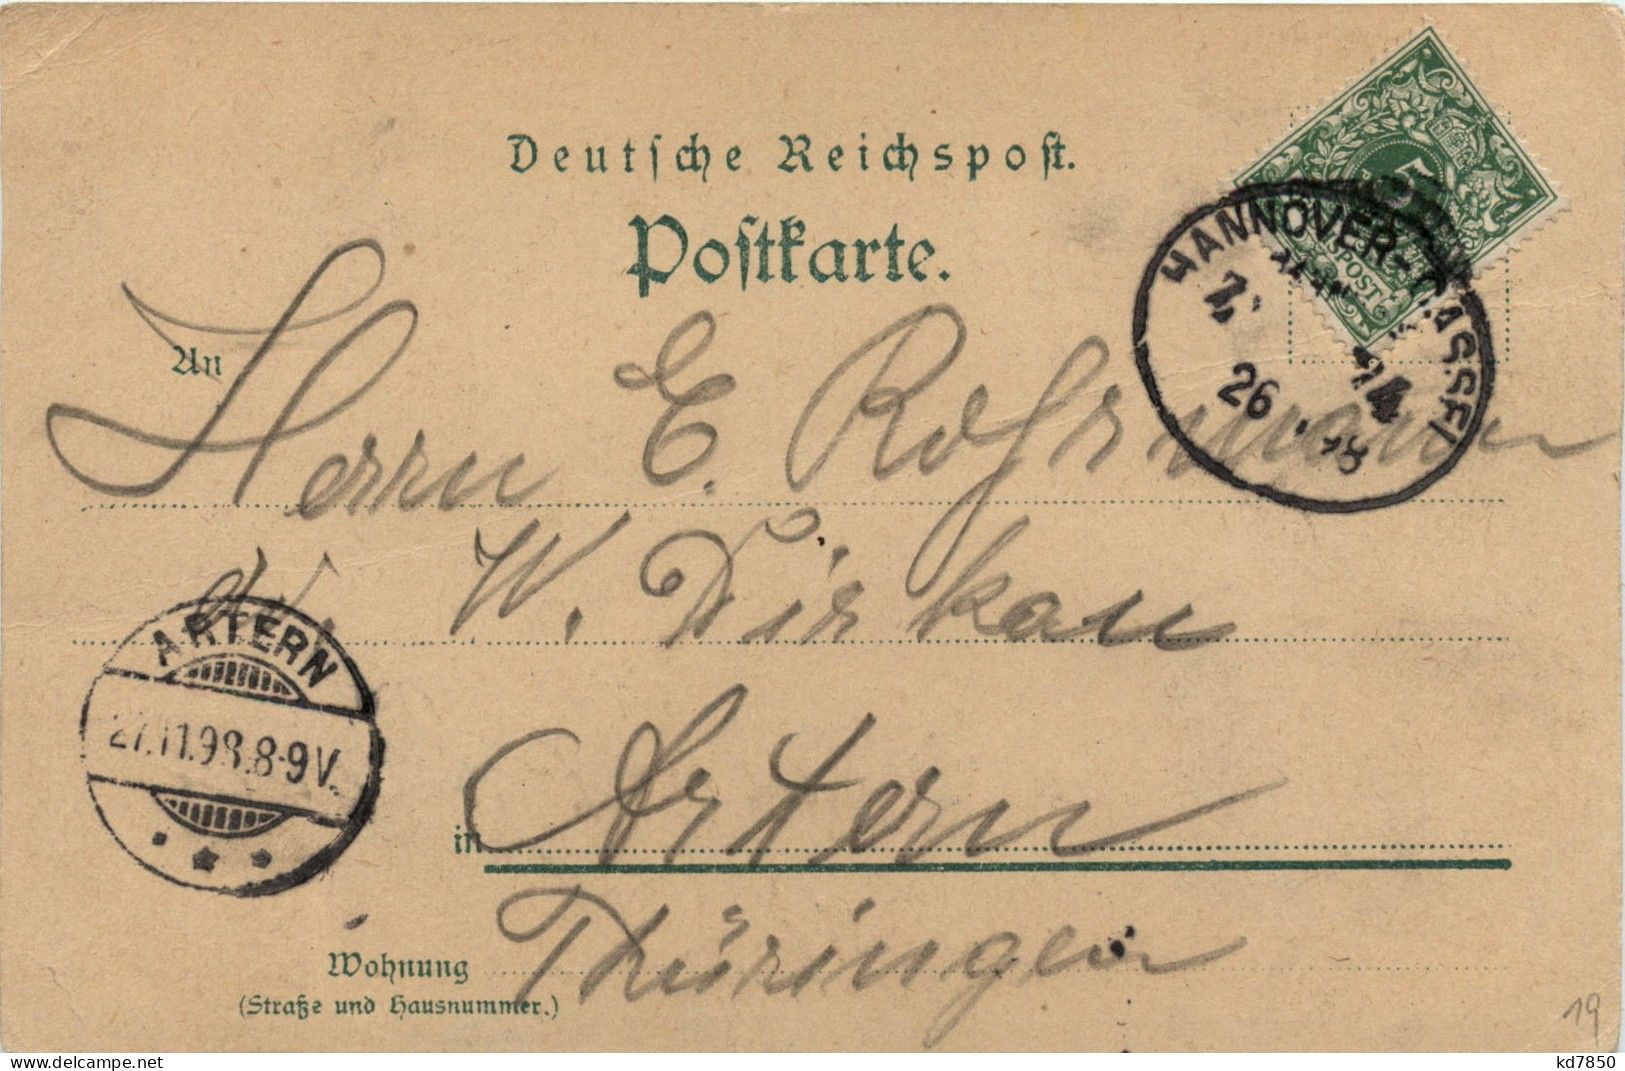 Deutsche Reichspost.
Postkarte.
5
REICHSPOST
HANNOVER-CASSEL
Z.
14
26 98
An
Herrn E. Rohrmann
W. Dirkau
ARTERN
27.11.98.8-9V.
in Artern
Thüringen
Wohnung
(Straße und Hausnummer.)
19
www.delcampe.net
kd7850